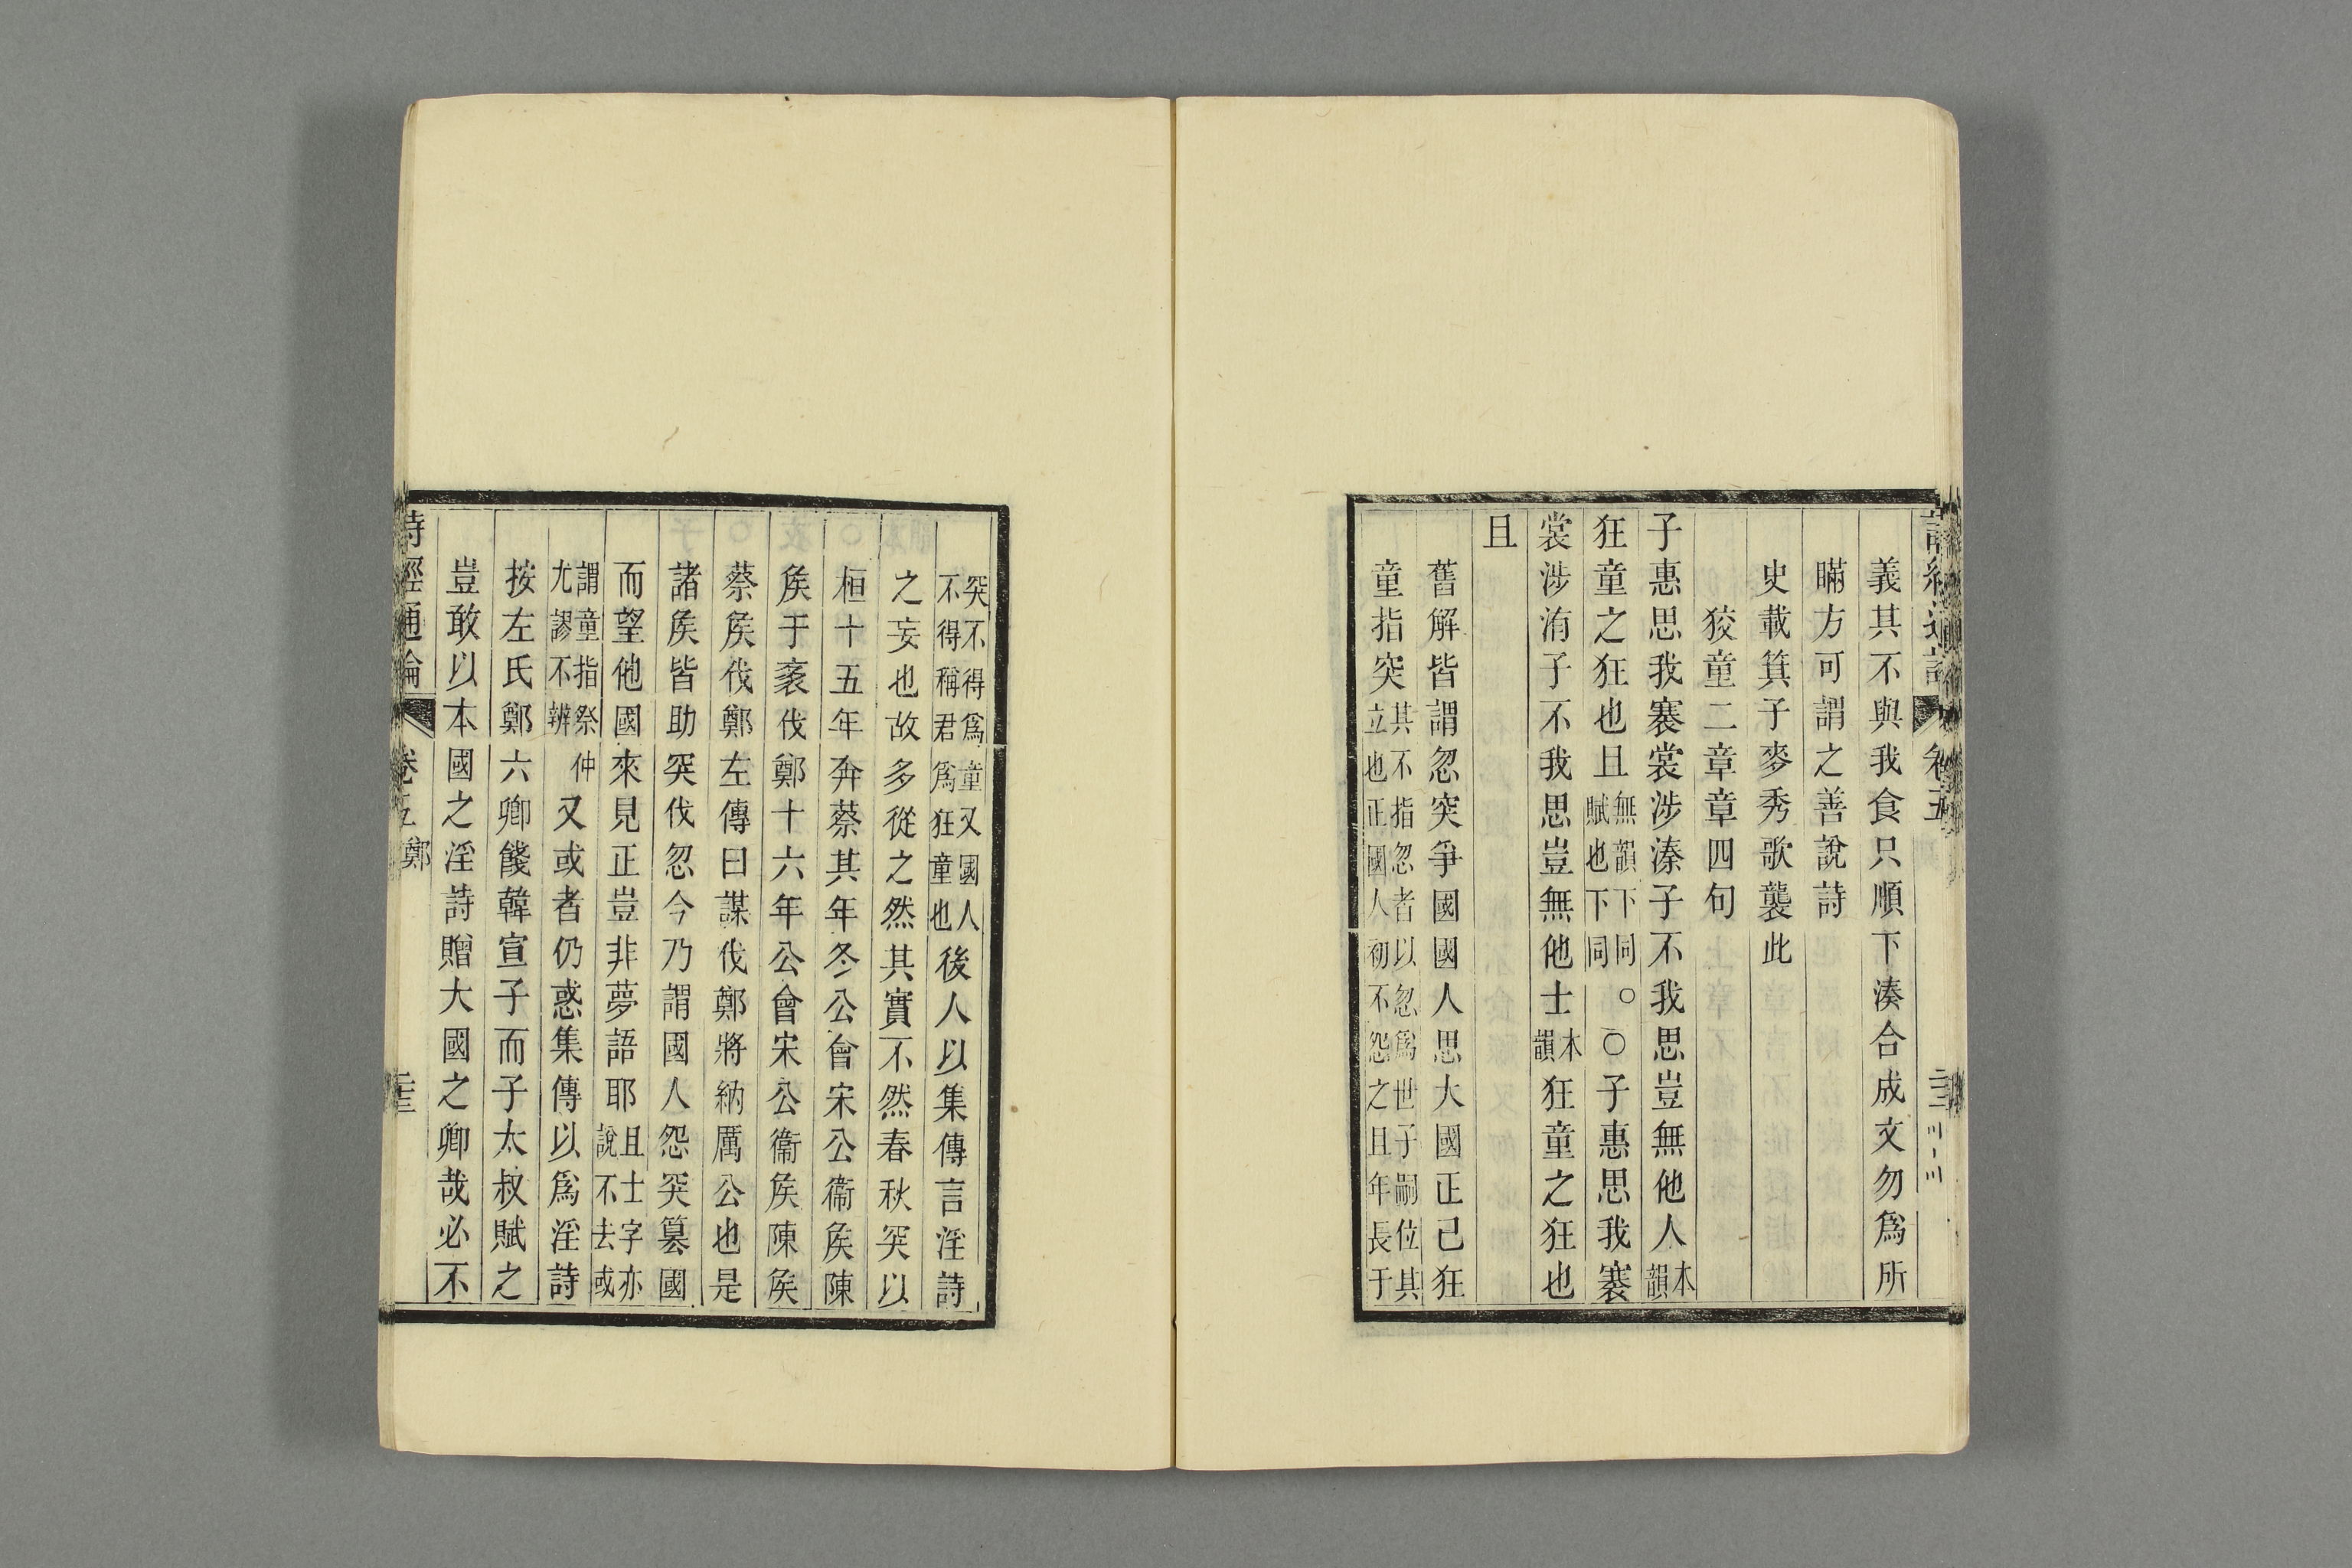 義其不與我食只順下湊合成文勿爲所
瞞方可謂之善說詩
史載箕子麥秀歌襲此
狡童二章章四句
子惠思我褰裳涉溱子不我思豈無他人本韻
狂童之狂也且無韻下同賦也下同。○子惠思我褰
裳涉洧子不我思豈無他士本韻狂童之狂也
且
舊解皆謂忽突爭國國人思大國正己狂
童指突其不指忽者以忽爲世子嗣位其立也正國人初不怨之且年長于
突不得爲童又國人不得稱君爲狂童也後人以集傳言淫詩
之妄也故多從之然其實不然春秋突以
桓十五年奔蔡其年冬公會宋公衞矦陳
矦于袲伐鄭十六年公會宋公衞矦陳矦
蔡矦伐鄭左傳曰謀伐鄭將納厲公也是
諸矦皆助突伐忽今乃謂國人怨突簒國
而望他國來見正豈非夢語耶且士字亦說不去或
謂童指祭仲尤謬不辨又或者仍惑集傳以爲淫詩
按左氏鄭六卿餞韓宣子而子太叔賦之
豈敢以本國之淫詩贈大國之卿哉必不
詩經通論 卷五 鄭 三三